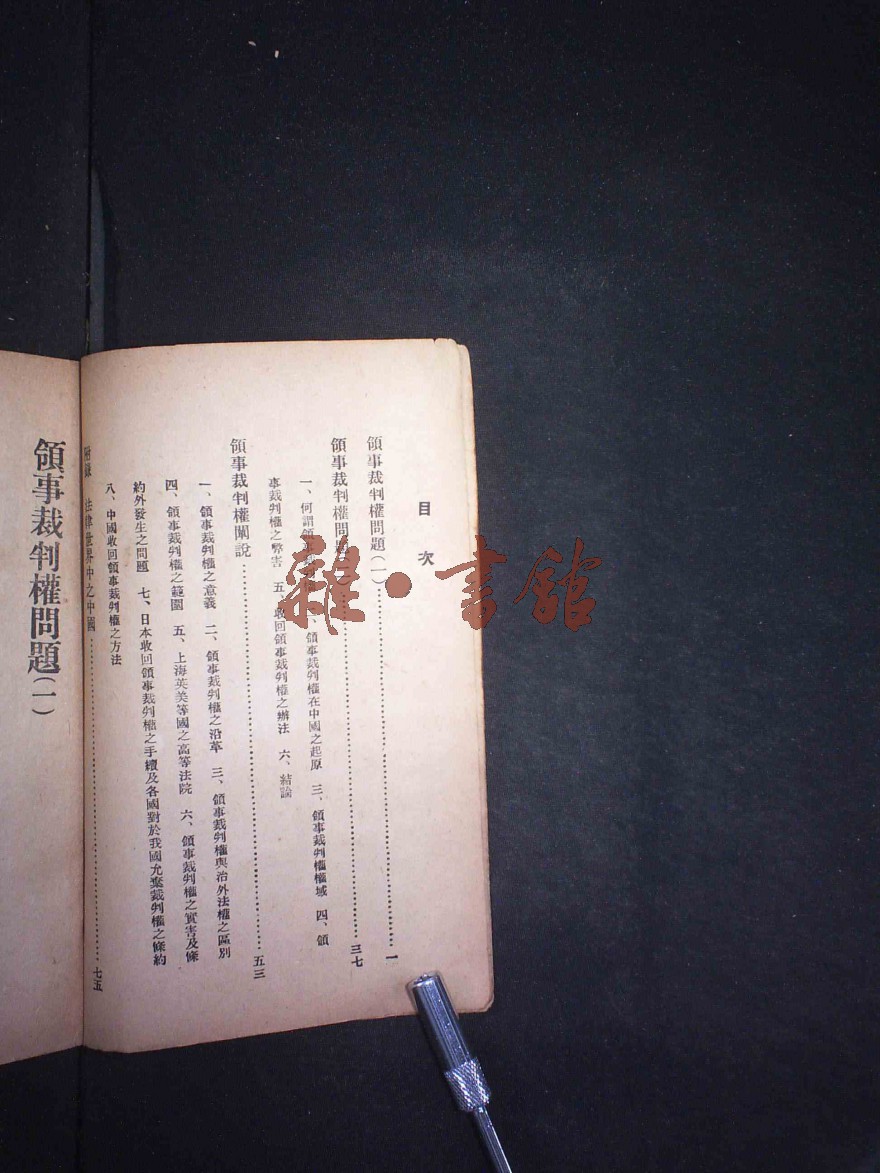 目次
領事裁判權問題(一)……一
領事裁判權問題……三七
一、何謂領事 領事裁判權在中國之起原 三、領事裁判權權域 四、領
事裁判權之弊害 五、收回領事裁判權之辦法 六、結論
領事裁判權闡說……五三
一、領事裁判權之意義 二、領事裁判權之沿革 三、領事裁判權與治外法權之區別
四、領事裁判權之範圍 五、上海英美等國之高等法院 六、領事裁判權之實害及條
約外發生之問題 七、日本收回領事裁判權之手續及各國對於我國允棄裁判權之條約
八、中國收回領事裁判權之方法
附錄 法律世界中之中國……七五
領事裁判權問題(一)
雜·書館